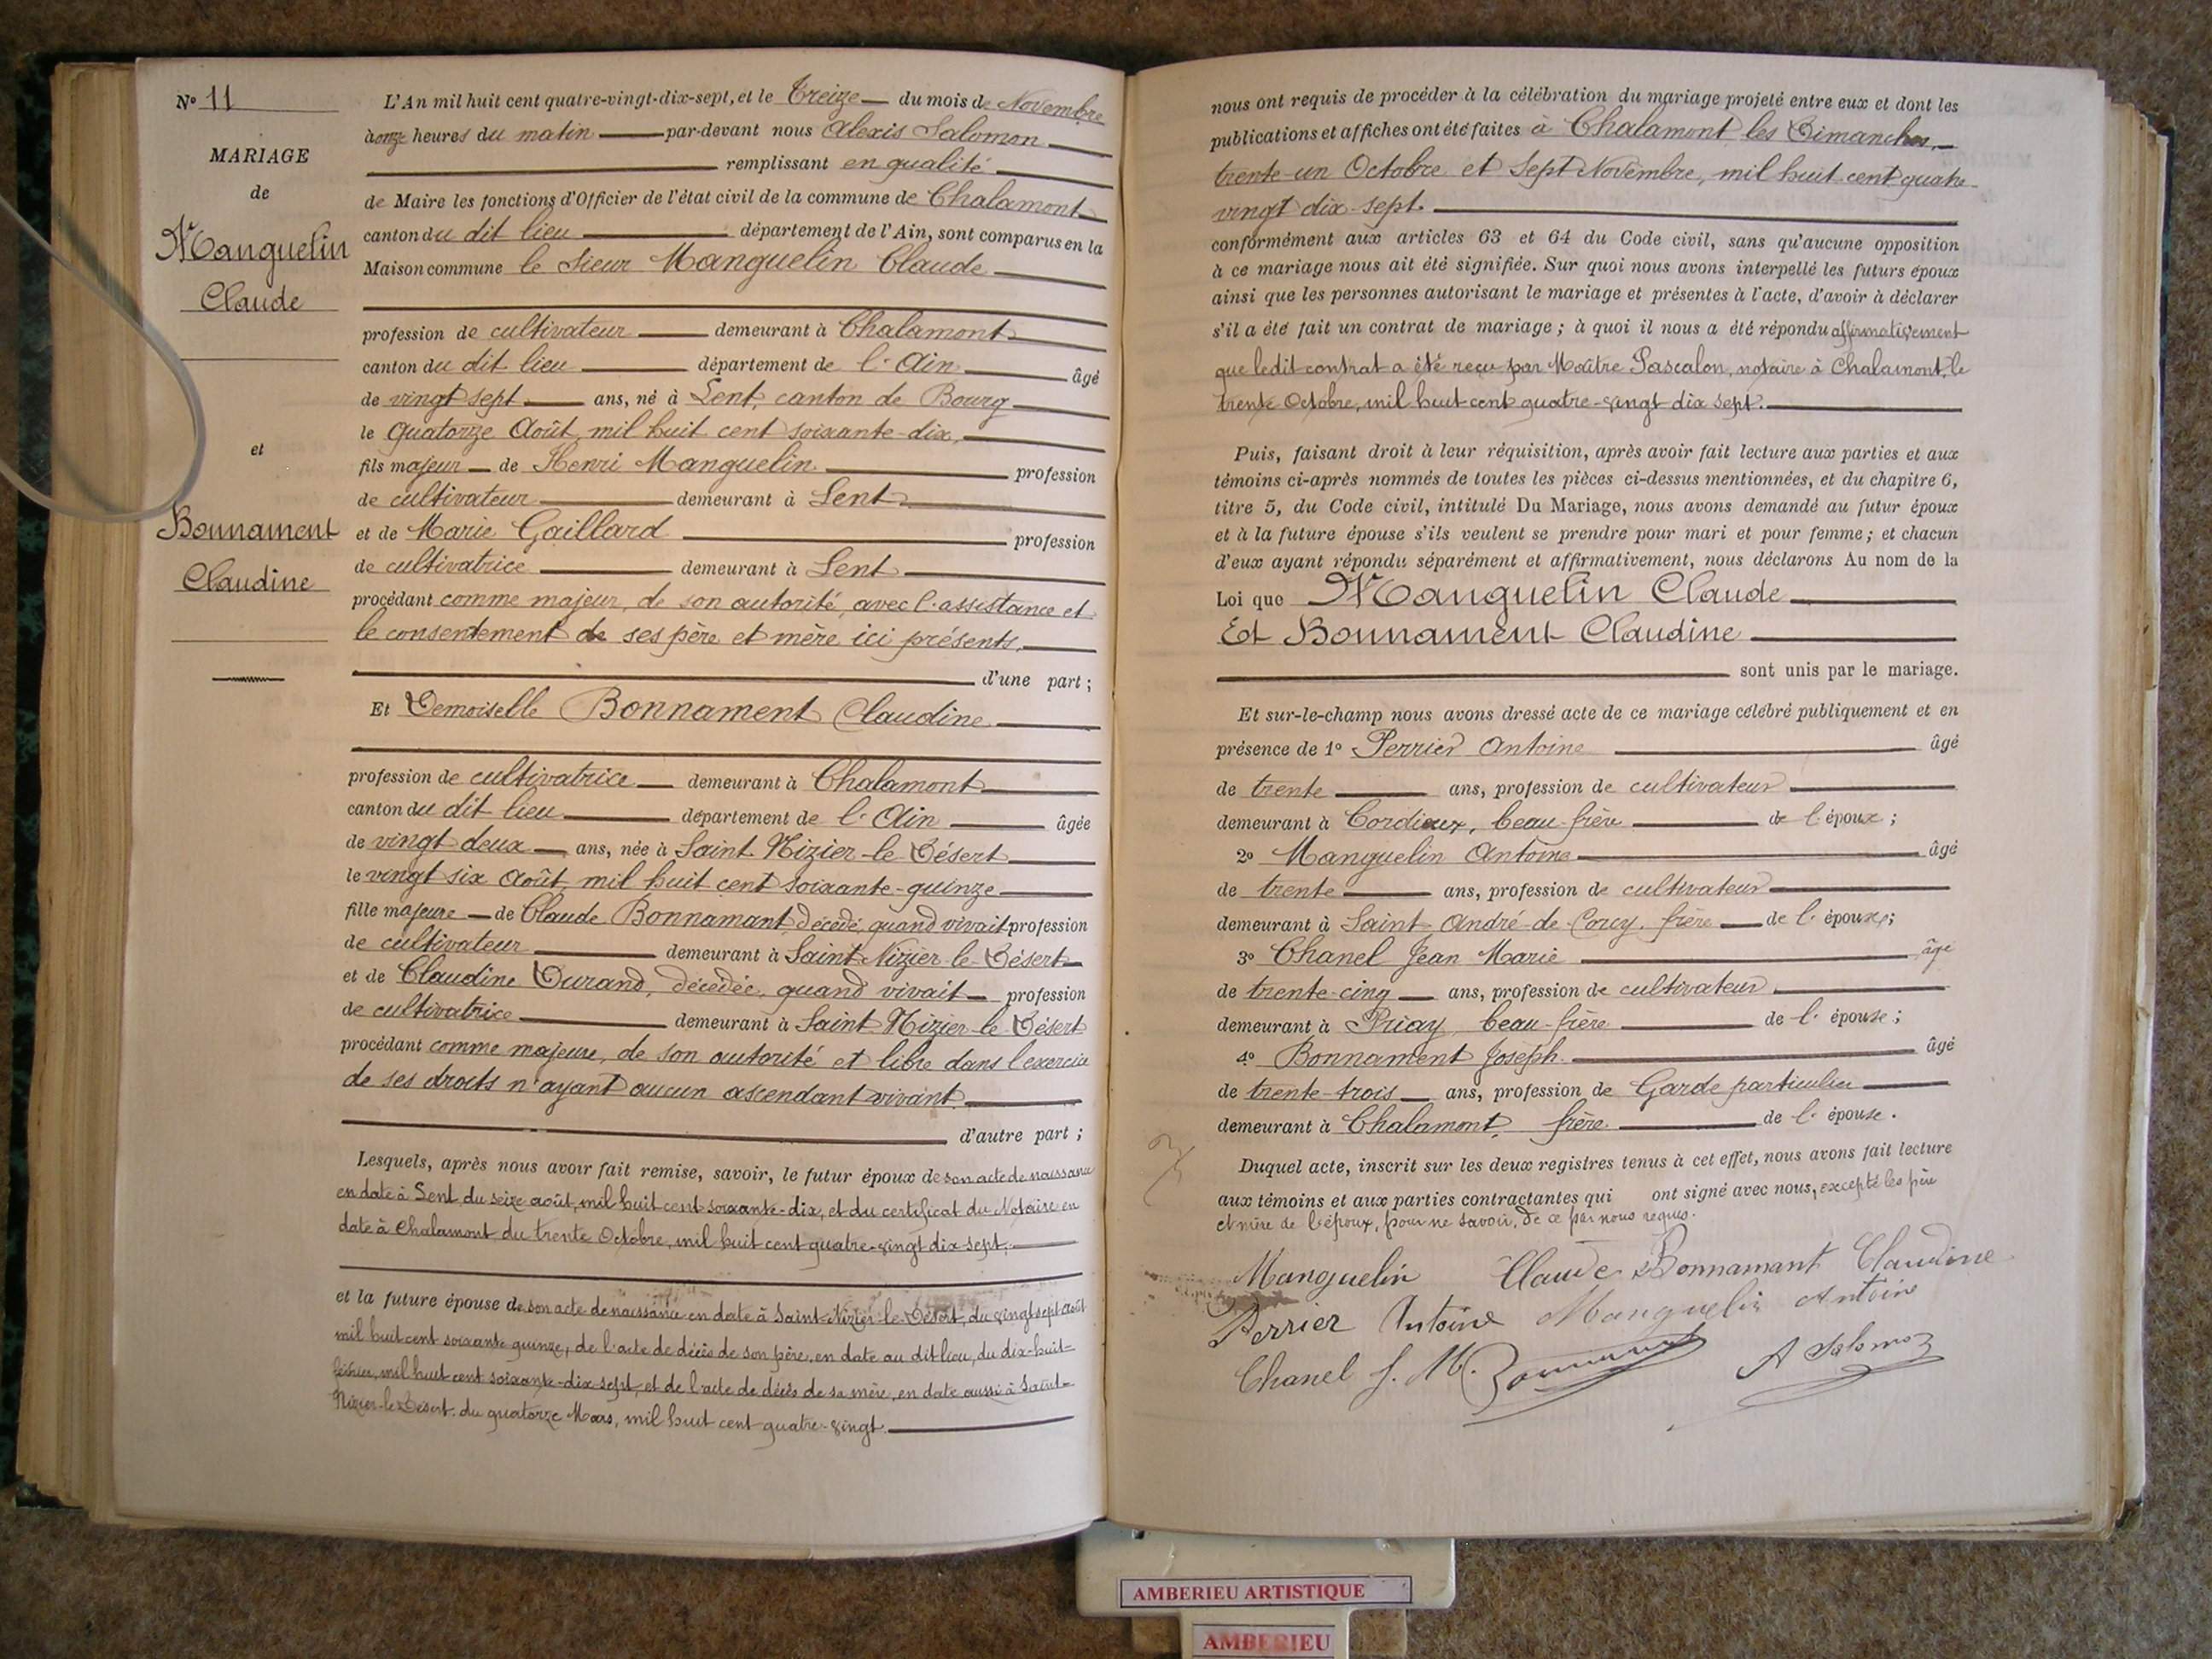 N° 11
MARIAGE
de
Manguelin
Claude
et
Bonnament
Claudine
L'An mil huit cent quatre-vingt-dix-sept, et le Treize du mois de Novembre
à onze heures du matin par-devant nous Alexis Salomon
remplissant en qualité
de Maire les fonctions d'Officier de l'état civil de la commune de Chalamont
canton du dit lieu département de l'Ain, sont comparus en la
Maison commune le Sieur Manguelin Claude
profession de cultivateur demeurant à Chalamont
canton du dit lieu département de l'Ain âgé
de vingt sept ans, né à Lent, canton de Bourg
le quatorze Août mil huit cent soixante-dix,
fils majeur de Henri Manguelin profession
de cultivateur demeurant à Lent
et de Marie Gaillard profession
de cultivatrice demeurant à Lent
procédant comme majeur, de son autorité, avec l'assistance et
le consentement de ses père et mère ici présents,
d'une part ;
Et Demoiselle Bonnament Claudine
profession de cultivatrice demeurant à Chalamont
canton du dit lieu département de l'Ain âgée
de vingt deux ans, née à Saint-Nizier-le-Désert
le vingt six Août mil huit cent soixante-quinze
fille majeure de Claude Bonnamant, décédé, quand vivait profession
de cultivateur demeurant à Saint-Nizier-le-Désert
et de Claudine Durand, décédée, quand vivait profession
de cultivatrice demeurant à Saint-Nizier-le-Désert
procédant comme majeure, de son autorité et libre dans l'exercice
de ses droits n'ayant aucun ascendant vivant.
d'autre part ;
Lesquels, après nous avoir fait remise, savoir, le futur époux de son acte de naissance
en date à Lent, du seize août, mil huit cent soixante-dix, et du certificat du Notaire en
date à Chalamont du trente Octobre, mil huit cent quatre-vingt dix sept.
et la future épouse de son acte de naissance en date à Saint-Nizier-le-Désert, du vingt sept août
mil huit cent soixante quinze, de l'acte de décès de son père, en date au dit lieu, du dix-huit-
février, mil huit cent soixante-dix sept, et de l'acte de décès de sa mère, en date aussi à Saint-
Nizier-le-Désert, du quatorze Mars, mil huit cent quatre-vingt.
nous ont requis de procéder à la célébration du mariage projeté entre eux et dont les
publications et affiches ont été faites à Chalamont, les Dimanches
trente-un Octobre et Sept Novembre, mil huit cent quatre-
vingt dix-sept.
conformément aux articles 63 et 64 du Code civil, sans qu'aucune opposition
à ce mariage nous ait été signifiée. Sur quoi nous avons interpellé les futurs époux
ainsi que les personnes autorisant le mariage et présentes à l'acte, d'avoir à déclarer
s'il a été fait un contrat de mariage ; à quoi il nous a été répondu affirmativement
que ledit contrat a été reçu par Maître Pascalon, notaire à Chalamont, le
trente Octobre, mil huit-cent quatre-vingt dix sept.
Puis, faisant droit à leur réquisition, après avoir fait lecture aux parties et aux
témoins ci-après nommés de toutes les pièces ci-dessus mentionnées, et du chapitre 6,
titre 5, du Code civil, intitulé Du Mariage, nous avons demandé au futur époux
et à la future épouse s'ils veulent se prendre pour mari et pour femme ; et chacun
d'eux ayant répondu séparément et affirmativement, nous déclarons Au nom de la
Loi que Manguelin Claude
Et Bonnament Claudine
sont unis par le mariage.
Et sur-le-champ nous avons dressé acte de ce mariage célébré publiquement et en
présence de 1° Perrier Antoine âgé
de trente ans, profession de cultivateur
demeurant à Cordieux, beau-frère de l'époux ;
2° Manguelin Antoine âgé
de trente ans, profession de cultivateur
demeurant à Saint-André-de-Corcy, frère de l'époux ;
3° Chanel Jean Marie âgé
de trente-cinq ans, profession de cultivateur
demeurant à Priay, beau-frère de l'épouse ;
4° Bonnament Joseph âgé
de trente-trois ans, profession de Garde particulier
demeurant à Chalamont, frère de l'épouse.
Duquel acte, inscrit sur les deux registres tenus à cet effet, nous avons fait lecture
aux témoins et aux parties contractantes qui ont signé avec nous, excepté les père
et mère de l'époux, pour ne savoir, de ce par nous requis.
Manguelin Claude Bonnamant Claudine
Perrier Antoine Manguelin Antoine
Chanel J. M. A Salomon
AMBERIEU ARTISTIQUE
AMBERIEU